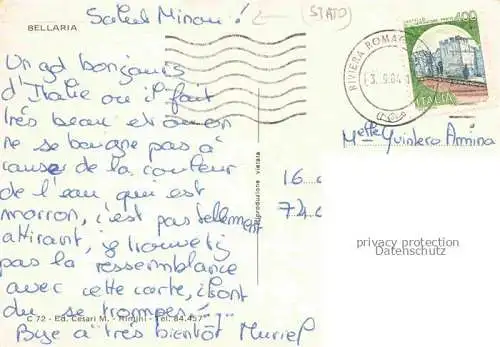 BELLARIA
Salut Minou! (STATO)
Un gd bonjours
d'Italie ou il fait
très beau et où on
ne se baigne pas à
cause de la couleur
de l'eau qui est
marron, c'est pas tellement
attirant, je trouve
pas la ressemblance
avec cette carte, ils ont
du se tromper!
Bise à très bientôt Muriel
C 72 - Ed. Cesari M. - Rimini - Tel. 84.457
Riproduzione vietata
RIVIERA ROMAG
3.9.84
400
ITALIA
Melle Quintero Amina
16
74
privacy protection
Datenschutz